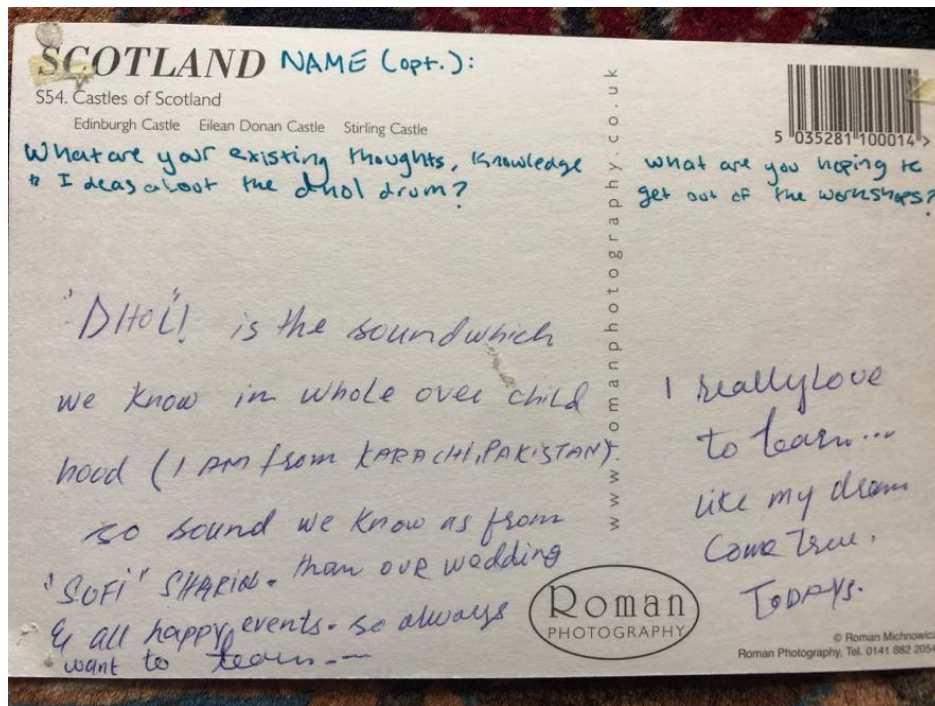 SCOTLAND NAME (opt.):
S54. Castles of Scotland
Edinburgh Castle Eilean Donan Castle Stirling Castle
What are your existing thoughts, knowledge
& Ideas about the dhol drum?
"DHOL"! is the sound which
we know in whole over child
hood (I AM from KARACHI, PAKISTAN)
so sound we know as from
"SUFI" . than our wedding
& all happy events. so always
want to learn...
www.romanphotography.co.uk
5 035281 100014 >
what are you hoping to
get out of the workshops?
I really Love
to learn...
like my dream
come True.
TODAYS.
Roman
PHOTOGRAPHY
© Roman Michnowicz
Roman Photography, Tel. 0141 882 2054